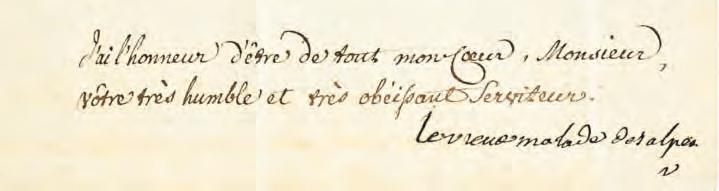 J'ai l'honneur d'être de tout mon Cœur, Monsieur,
vôtre très humble et très obéissant Serviteur.
le vieux malade des alpes
V